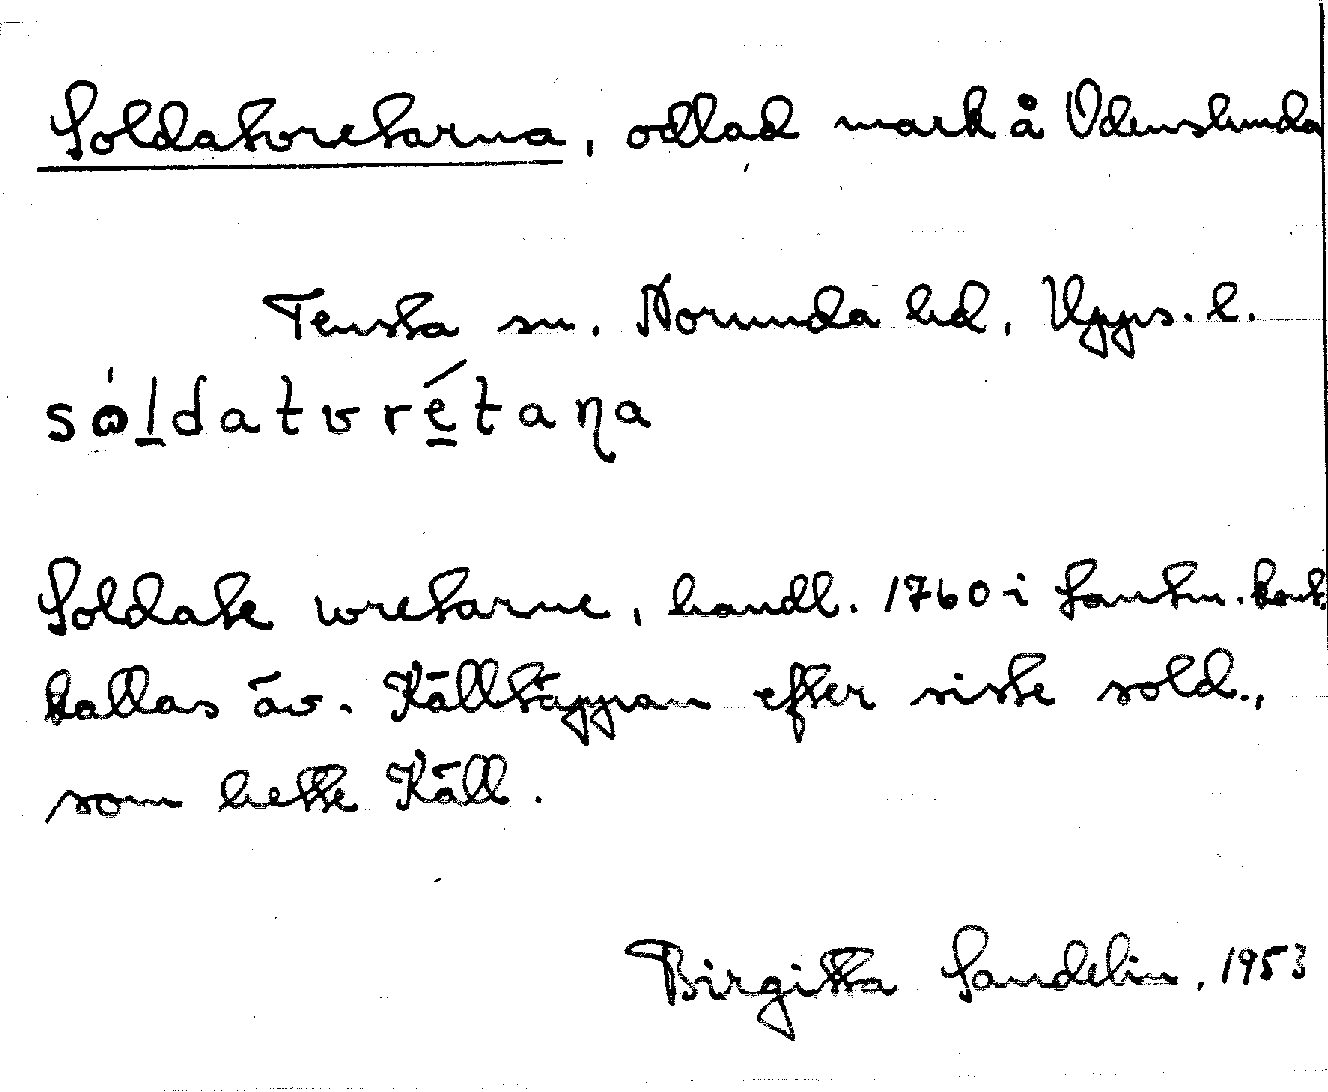 Soldatvretarna, odlad mark å Odenslunda
Tensta sn. Norunda hd, Upps. l.
sóldatvrétaŋa
Soldate wretarne, handl. 1760 i Lantm. kont.
kallas äv. Källtäppan efter siste sold.,
som hette Käll.
Birgitta Sandelin, 1953